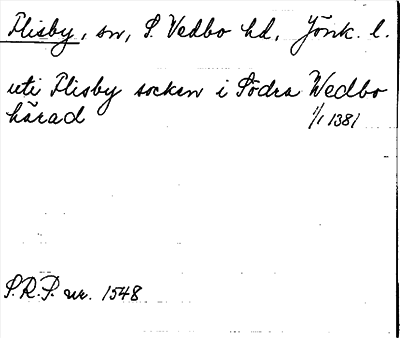 Flisby, sn, S. Vedbo hd, Jönk. l.
uti Flisby socken i Södra Wedbo
härad 1/1 1381
S.R.P. nr. 1548